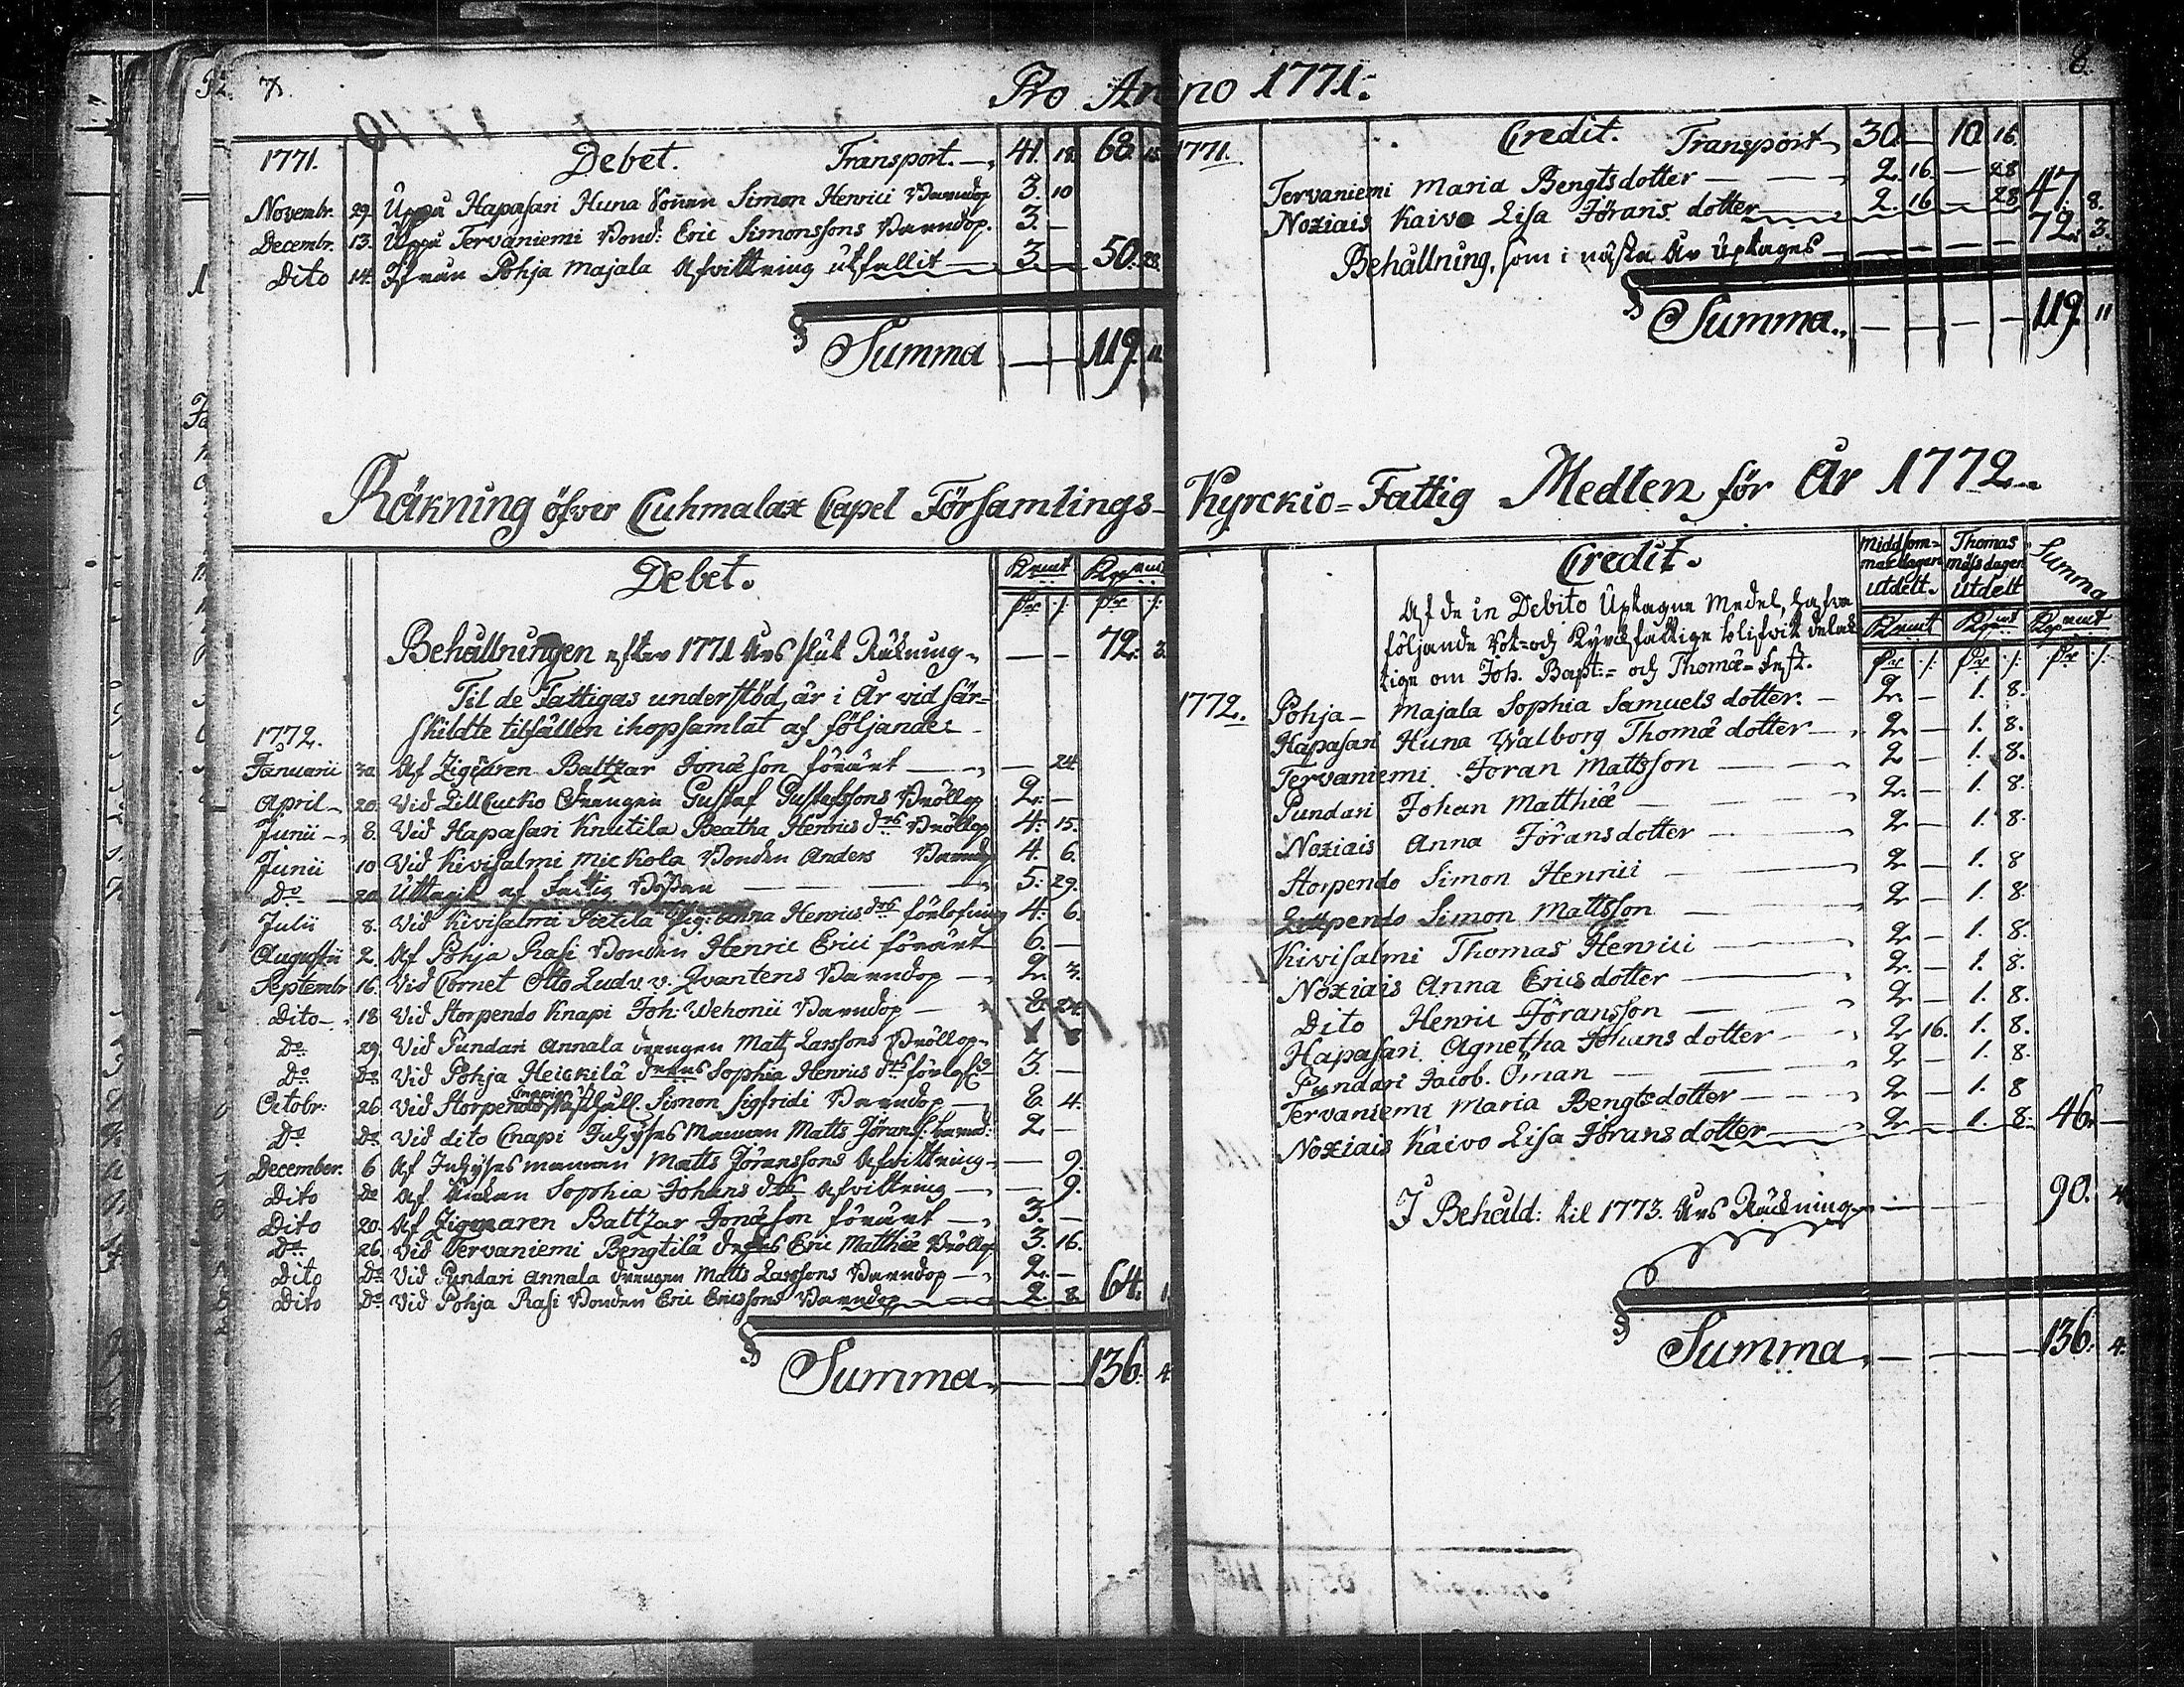 7.
Pro Anno 1771.
8.
1771. Debet. Transport. — 41. 18. 68. 15.
Novembr. 29. Uppå Hapasari Huna Sonen Simon Henrici Barndop 3. 10
Decembr. 13. Uppå Tervaniemi Bond: Eric Simonssons Barndop. 3. —
Dito 14. Ifrån Pohja Majala Afvittring utfallit — 3. — 50. 28.
Summa — — 119. 11.
1771. Credit. Transport — 30. — 10. 16.
Tervaniemi Maria Bengtsdotter — — 2. 16. — 28
Noxiais Kaivo Lisa Jörans dotter — 2. 16 — 28 47. 8.
Behållning, som i nästa År Uptages — — — — — 72. 3.
Summa. — — — — 119. 11
Räkning öfver Cuhmalax Capel Församlings- Kyrckio=Fattig Medlen för År 1772.
Debet. Krmt Kopmt
Plr /: Plr /:
Behållningen efter 1771 Års slut Räkning — — 72. 3.
Til de Fattigas understöd, är i År vid sär=
skildte tilfällen ihopsamlat af följande:
1772.
Januarii 30. Af Zigenaren Baltzar Jonæson förärt — — 24
April 20. Vid Lill Cucko Drengen Gustaf Gustafssons Bröllop 2. —
Junii 8. Vid Hapasari Knutila Beatha Henrics dtrs Bröllop 4. 15.
Junii 10 Vid Kivisalmi Mickola Bonden Anders Barndop 4. 6.
Do 20. Uttagit af Fattig Bössan — 5. 29.
Julii 8. Vid Kivisalmi Pietila Pig: Anna Henrics dtrs förlofning 4. 6.
Augustii 2. Af Pohja Rasi Bonden Henric Erici förärt 6. —
Septembr 16. Vid Cornet Otto Ludv. v. Qvantens Barndop — 2. 3.
Dito 18 Vid Storpendo Knapi Joh: Wehonii Barndop — 8. 24.
Do 29. Vid Pundari Annala drengen Matts Larssons Bröllop
Do Do Vid Pohja Heickilä Sophia Henrics dtrs förlofg 3. —
Octobr: 26. Vid Storpendo Simon Sigfridi Barndop — 8. 4.
Do Do Vid dito Cnapi Inhyses Mannen Matts Jöranss: barnd: 2. —
December. 6 Af Inhysesmannen Matts Jöranssons Afvittring — 9.
Dito Do Af Änkan Sophia Johans dtrs Afvittring — — 9.
Dito 20. Af Zigenaren Baltzar Jonæson förärt — 3. —
Do 26. Vid Tervaniemi Bengtilä Eric Matthiæ Bröllop 3. 16.
Dito Do Vid Pundari Annala drengen Matts Larssons Barndop — 2. —
Dito Do Vid Pohja Rasi Bonden Eric Ericssons Barndop 2. 8. 64. 1.
Summa — — 136. 4.
Credit. Middsom=marsdagen utdelt. Thomas mäss dagen utdelt Summa
Af de in Debito Uptagne Medel, hafva
följande Rot= och Kyrckfattige blifvit delak
tige om Joh. Bapt:= och Thomæ=fest.
Krmt Kopmt Kopmt
Plr /: Plr /: Plr /:
1772. Pohja — Majala Sophia Samuels dotter. — 2. — 1. 8.
Hapasari Huna Walborg Thomæ dotter — 2. — 1. 8.
Tervaniemi Joran Mattsson — 2 — 1. 8.
Pundari Johan Matthiæ — 2. — 1. 8.
Noxiais Anna Föransdotter — 2 — 1. 8.
Storpendo Simon Henrici — 2 — 1. 8
Lillpendo Simon Mattsson — 2 — 1. 8.
Kivisalmi Thomas Henrici — 2 — 1. 8.
Noxiais Anna Erics dotter — 2. — 1. 8.
Dito Henric Föransson — 2 — 1. 8.
Hapasari Agnetha Johans dotter — 2 16. 1. 8.
Pundari Jacob Öman — 2 — 1. 8.
Tervaniemi Maria Bengtsdotter — 2 — 1. 8
Noxiais Kaivo Lisa Jörans dotter — 2 — 1. 8. 46. —
I Behåld: til 1773. Års Räkning — — 90. 4.
Summa. — — 136. 4.